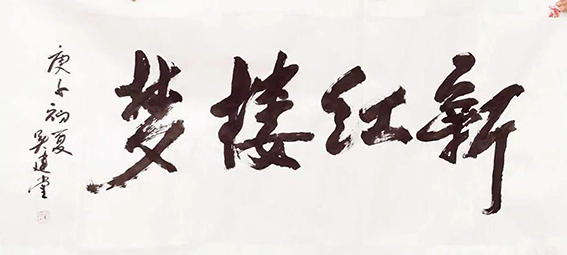 新红楼梦
庚子初夏
吴建堂